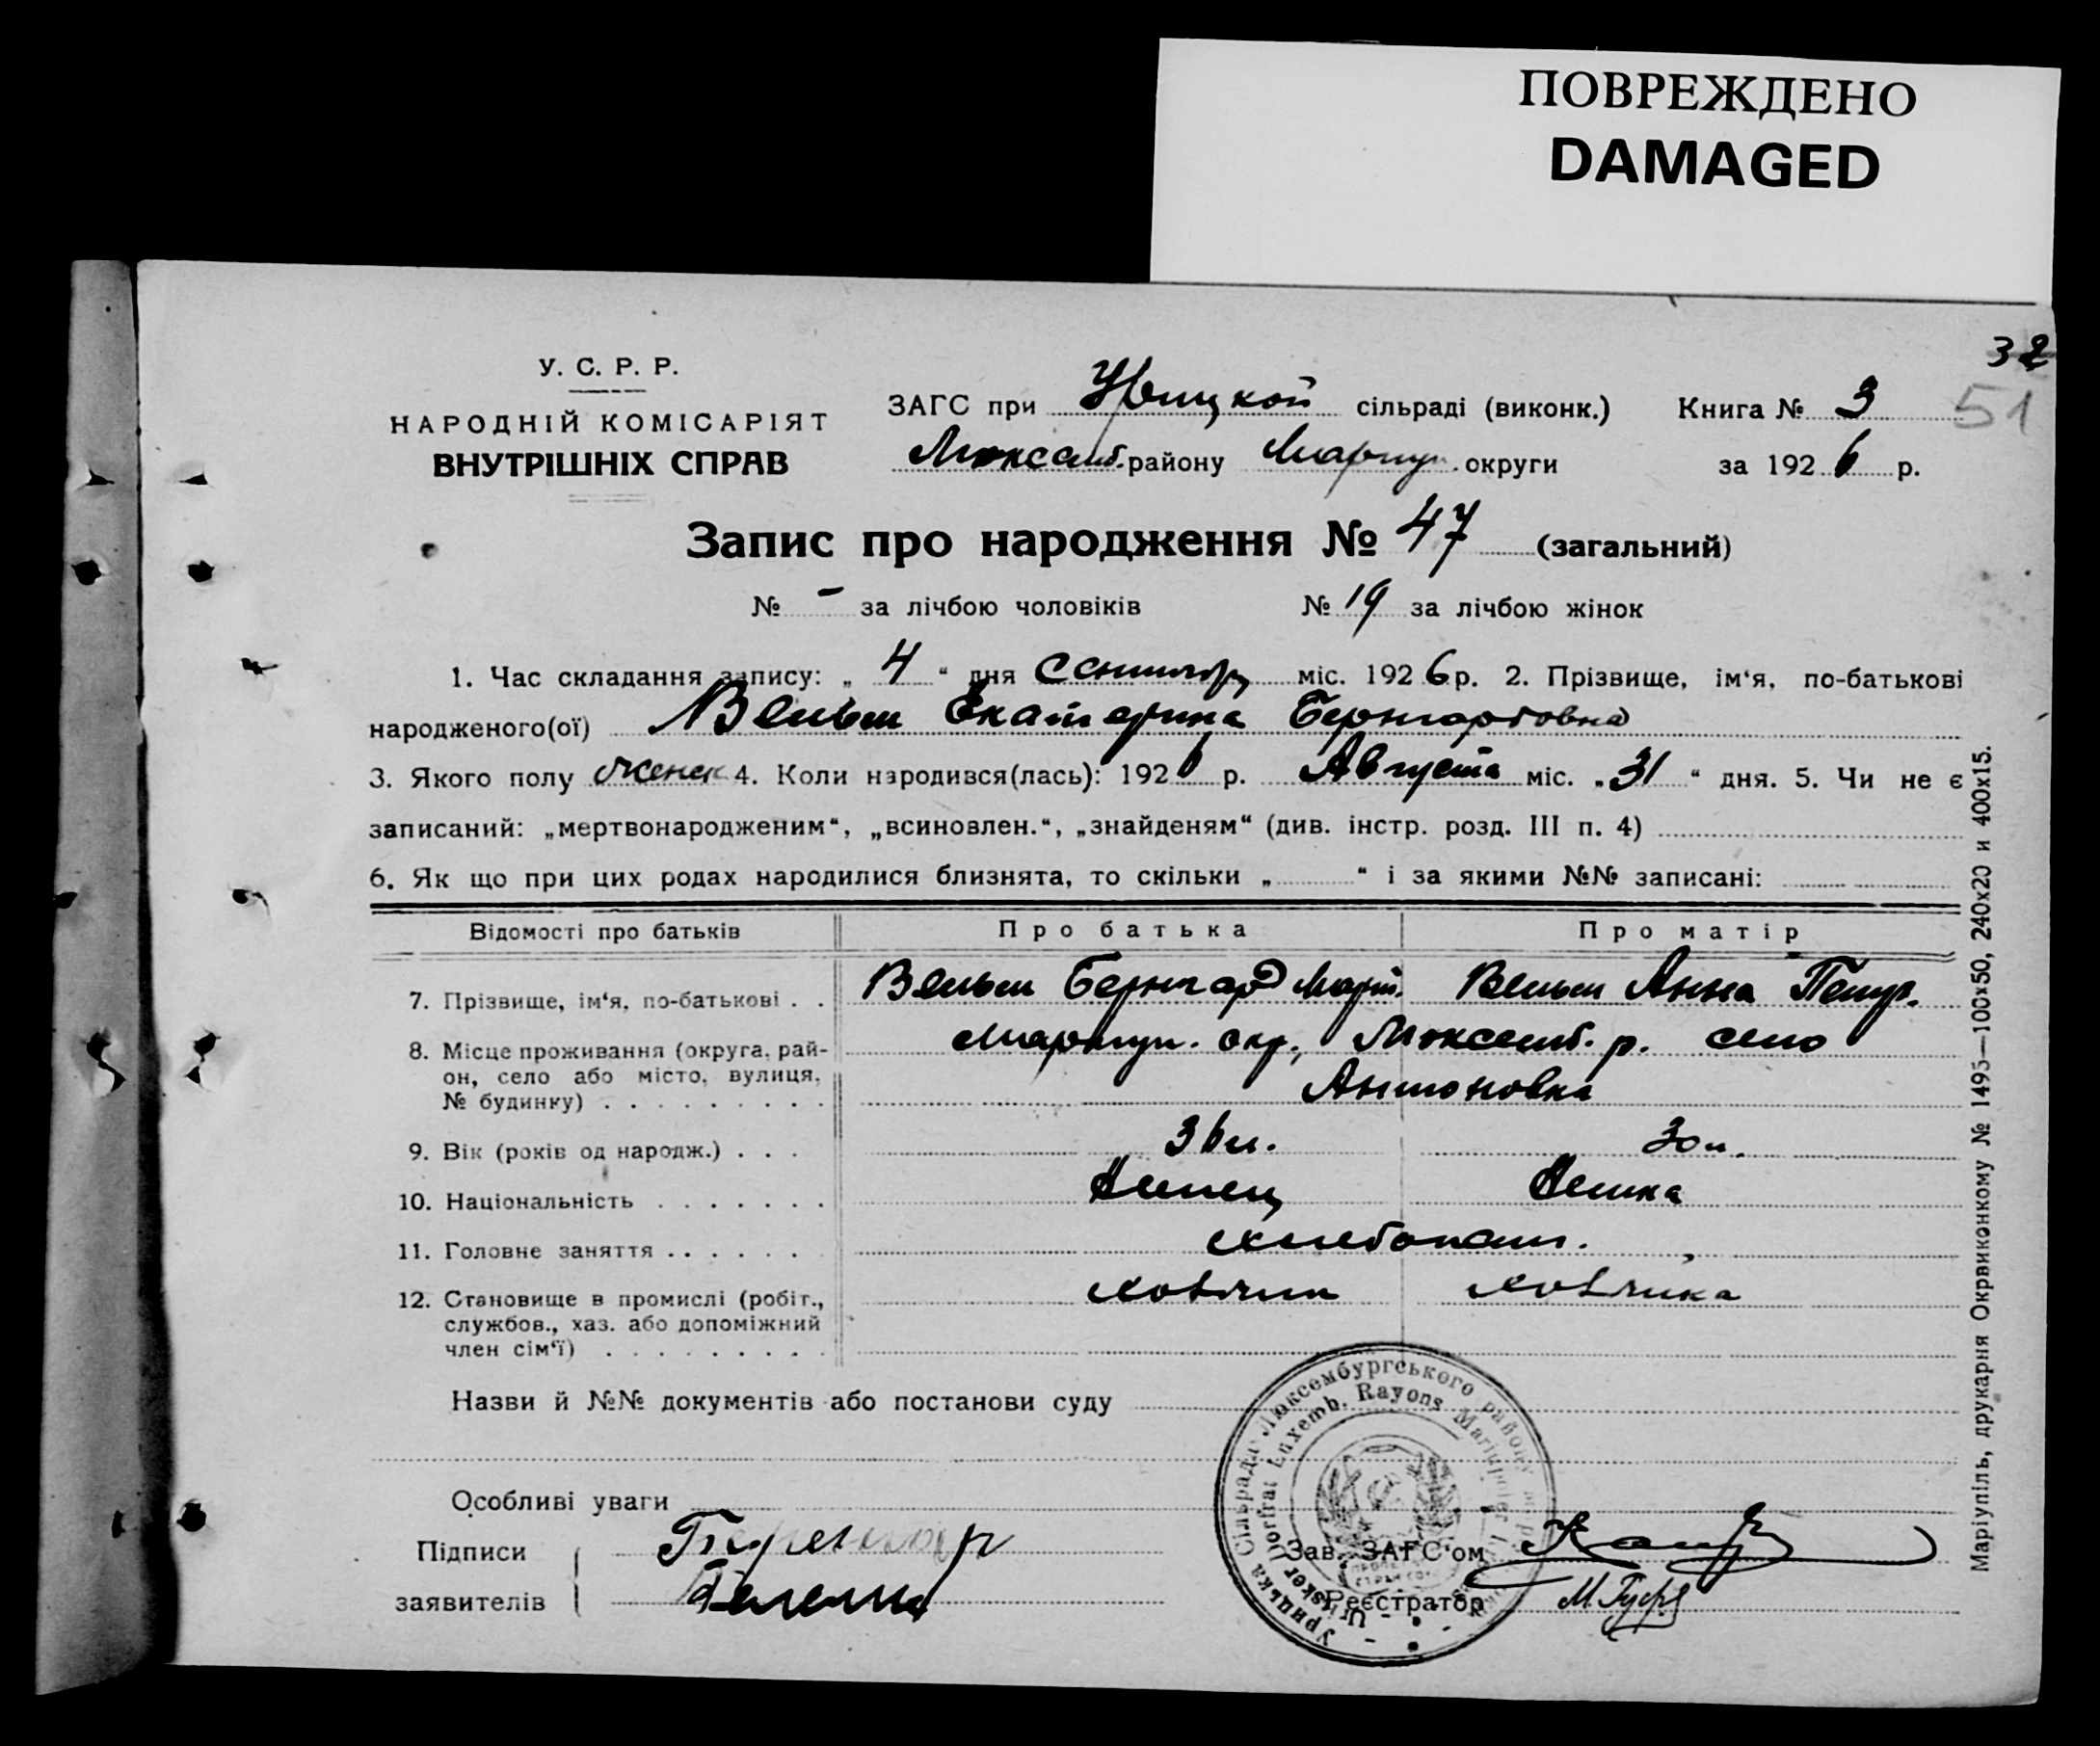 ПОВРЕЖДЕНО
DAMAGED
32
51
У. С. Р. Р.
НАРОДНІЙ КОМІСАРІЯТ
ВНУТРІШНІХ СПРАВ
ЗАГС при Урицкой сільраді (виконк.) Книга № 3
Люксемб. району Мариуп. округи за 1926 р.
Запис про народження № 47 (загальний)
№ - за лічбою чоловіків № 19 за лічбою жінок
1. Час складання запису: „ 4 “ дня Сентября міс. 1926 р. 2. Прізвище, ім‘я, по-батькові
народженого(ої) Вельш Екатерина Бернгардовна
3. Якого полу женск 4. Коли народився(лась): 1926 р. Августа міс. „31“ дня. 5. Чи не є
записаний: „мертвонародженим“, „всиновлен.“, „знайденям“ (див. інстр. розд. III п. 4)
6. Як що при цих родах народилися близнята, то скільки „ “ і за якими №№ записані:
Відомості про батьків Про батька Про матір
7. Прізвище, ім‘я, по-батькові . . Вельш Бернгард Март. Вельш Анна Петр.
8. Місце проживання (округа, рай-
он, село або місто, вулиця,
№ будинку) . . . . . . . . .
Мариуп. окр., Люксемб. р. село
Антоновка
9. Вік (років од народж.) . . . 36 л. 30 л.
10. Національність . . . . . . . Немец Немка
11. Головне заняття . . . . . . хлебопаш.
12. Становище в промислі (робіт.,
службов., хаз. або допоміжний
член сім‘ї) . . . . . . . . .
Назви й №№ документів або постанови суду
Особливі уваги
Підписи
заявителів
Зав. ЗАГС‘ом
Реєстратор
Урицька Сільрада Люксембургського району
Urizker Dorfrat Luxemb. Rayons Mariupoler
Маріупіль, друкарня Окрвиконкому № 1495—100×50, 240×20 и 400×15.